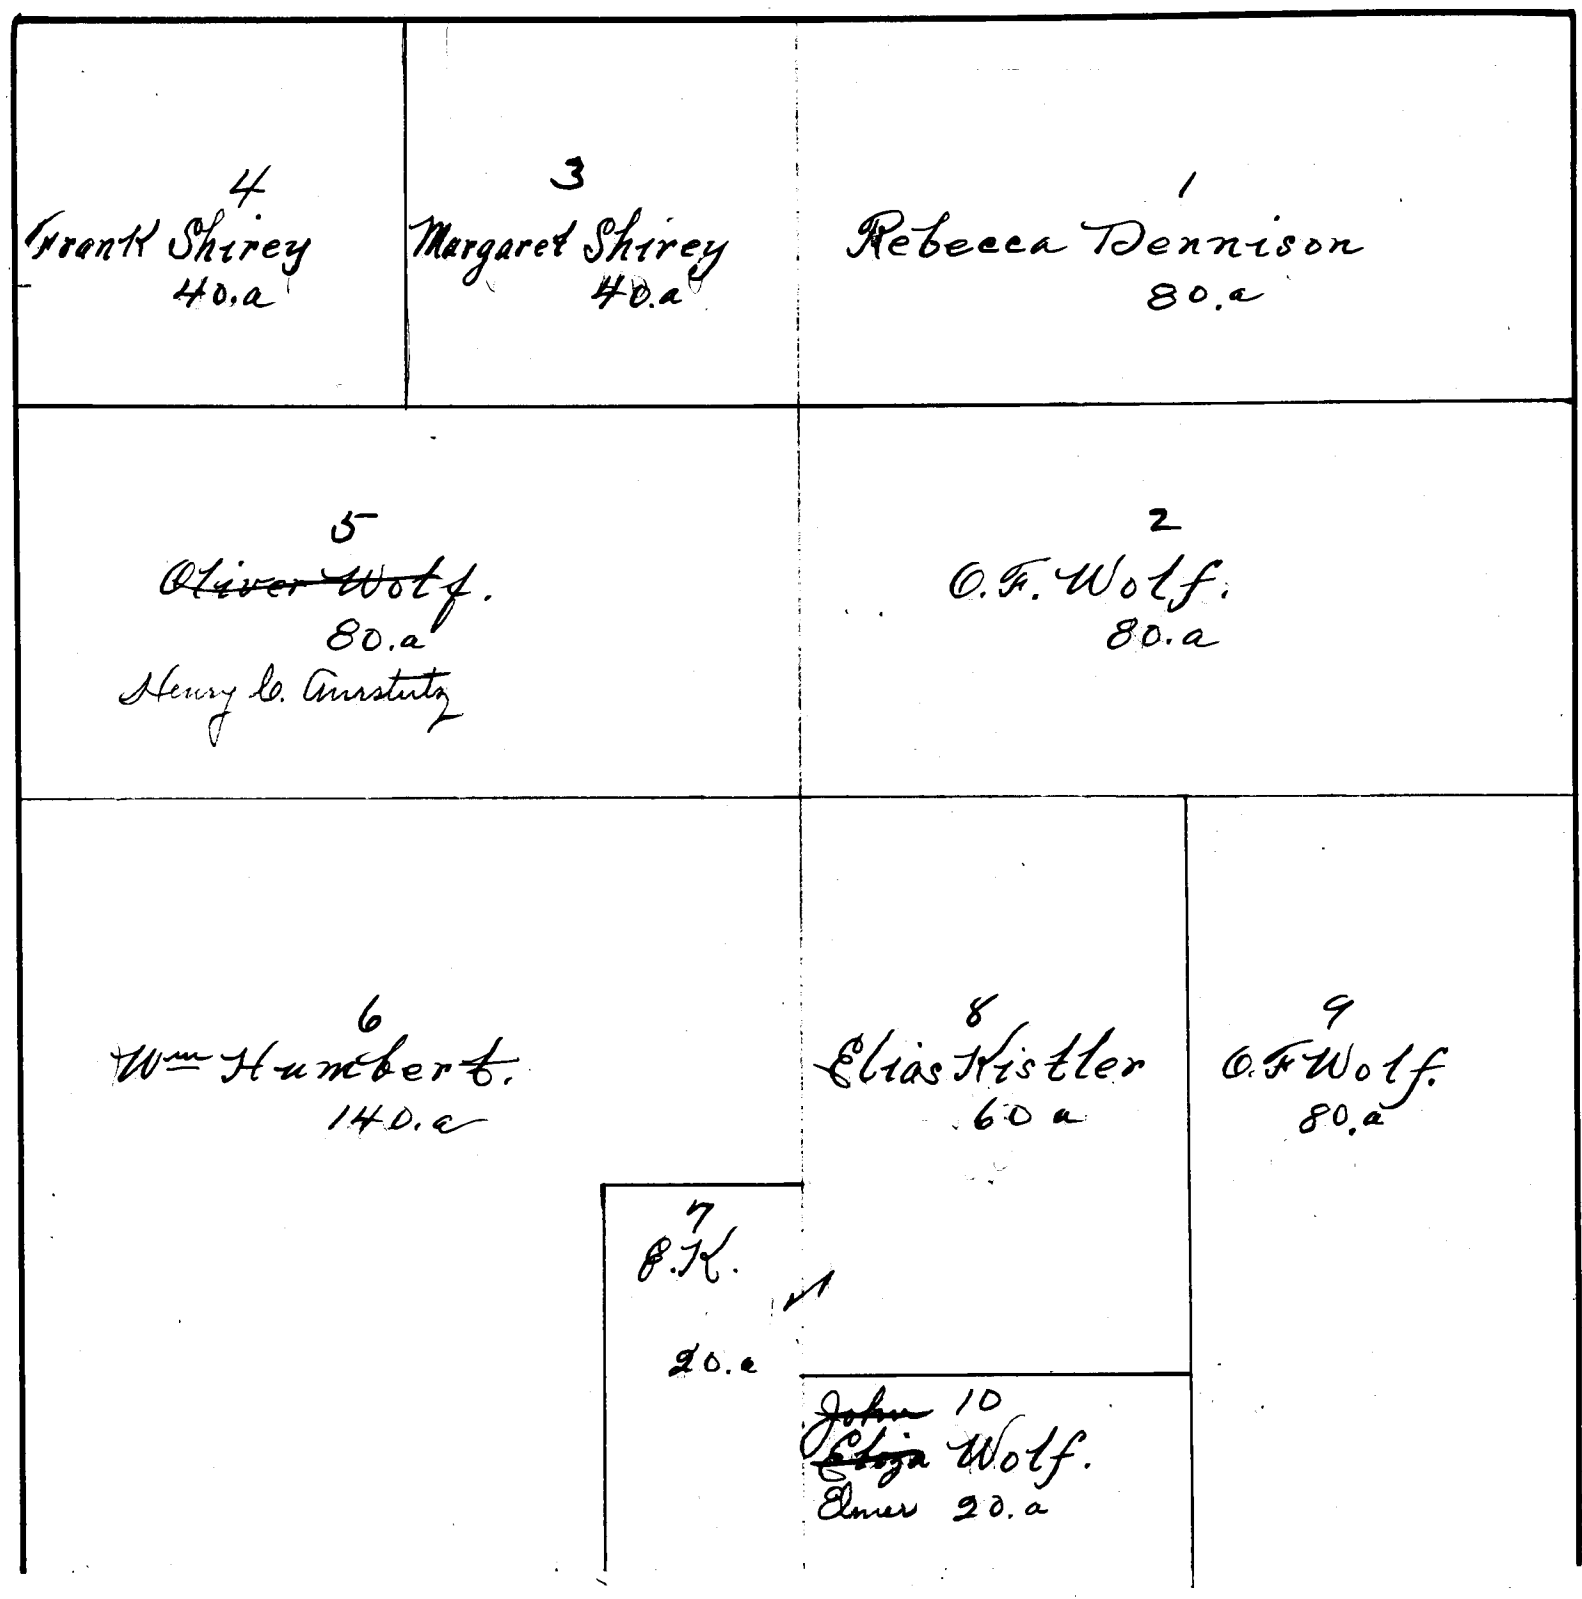 4
Frank Shirey
40.a
3
Margaret Shirey
40.a
1
Rebecca Dennison
80.a
5
Oliver Wolf.
80.a
Henry C.
2
O.F. Wolf.
80.a
6
Wm Humbert.
140.a
8
Elias Kistler
60 a
9
O.F Wolf.
80.a
7
E.K.
20.a
John 10
Eliza Wolf.
Elmer 20.a